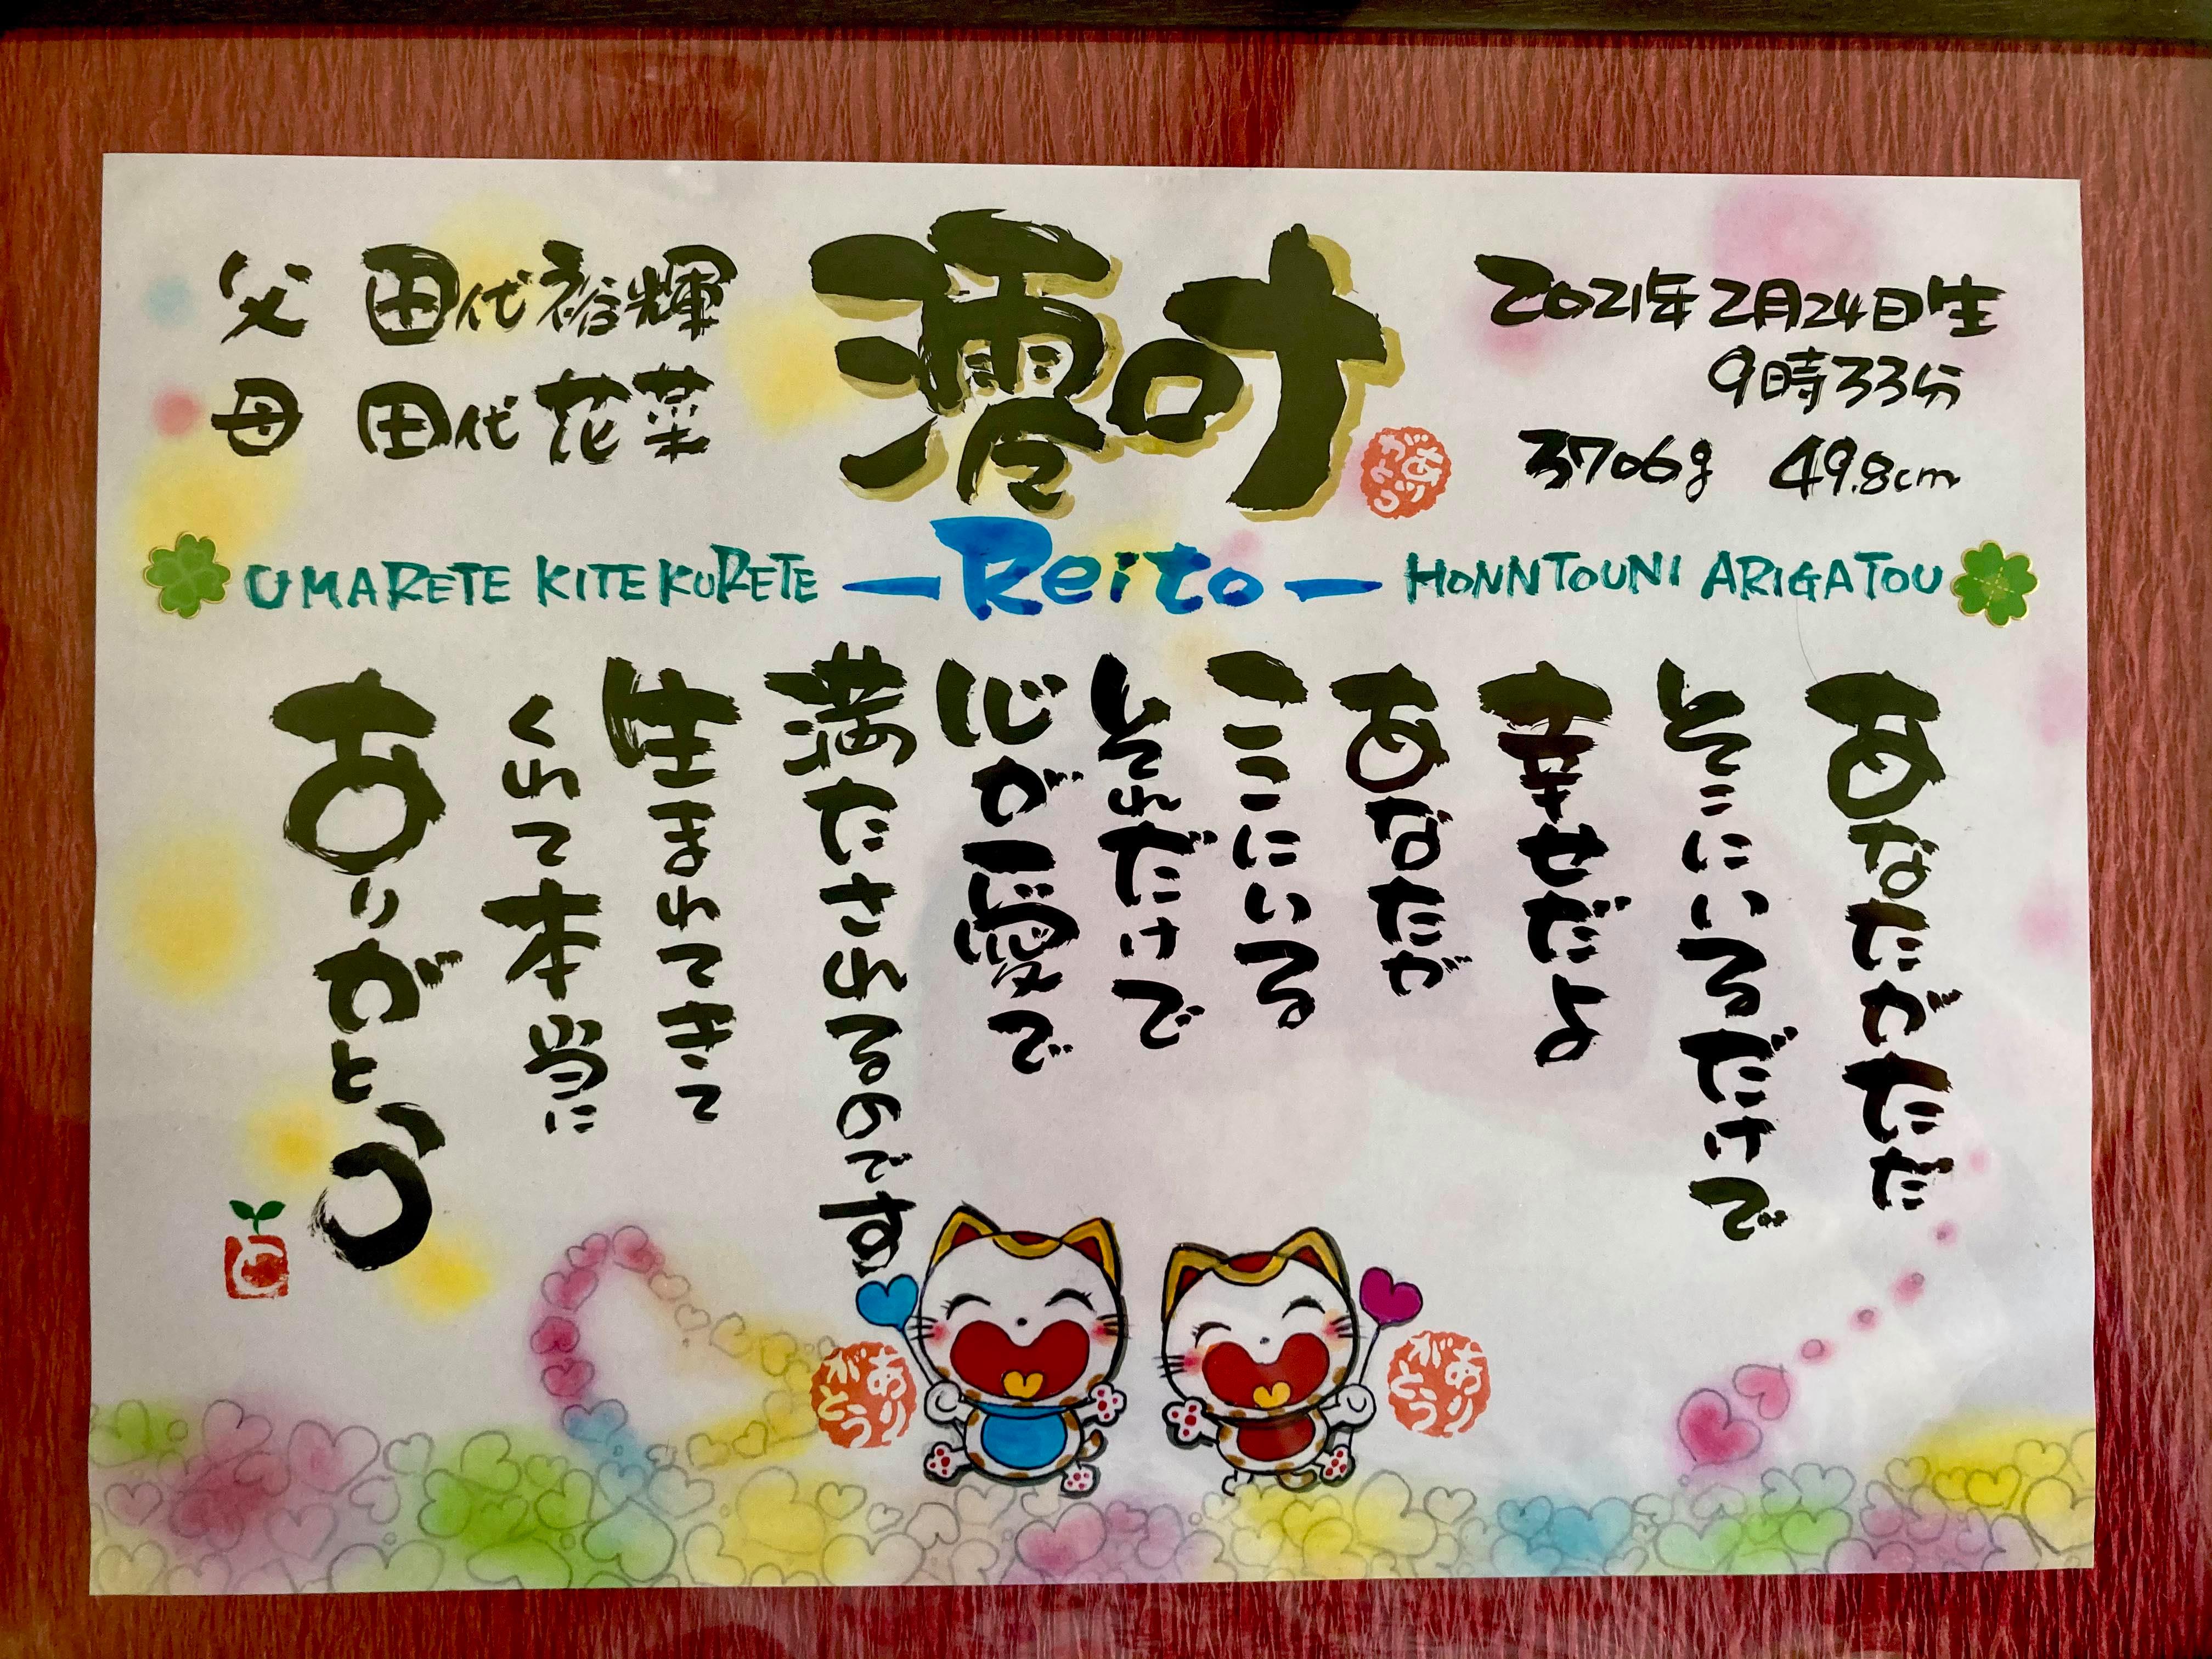 父 田代裕輝
母 田代花菜
澪叶
ありがとう
2021年2月24日生
9時33分
3706g 49.8cm
UMARETE KITEKURETE -Reito- HONNTOUNI ARIGATOU
あなたがただ
そこにいるだけで
幸せだよ
あなたが
ここにいる
それだけで
心が愛で
満たされるのです
生まれてきて
くれて本当に
ありがとう
ありがとう
ありがとう